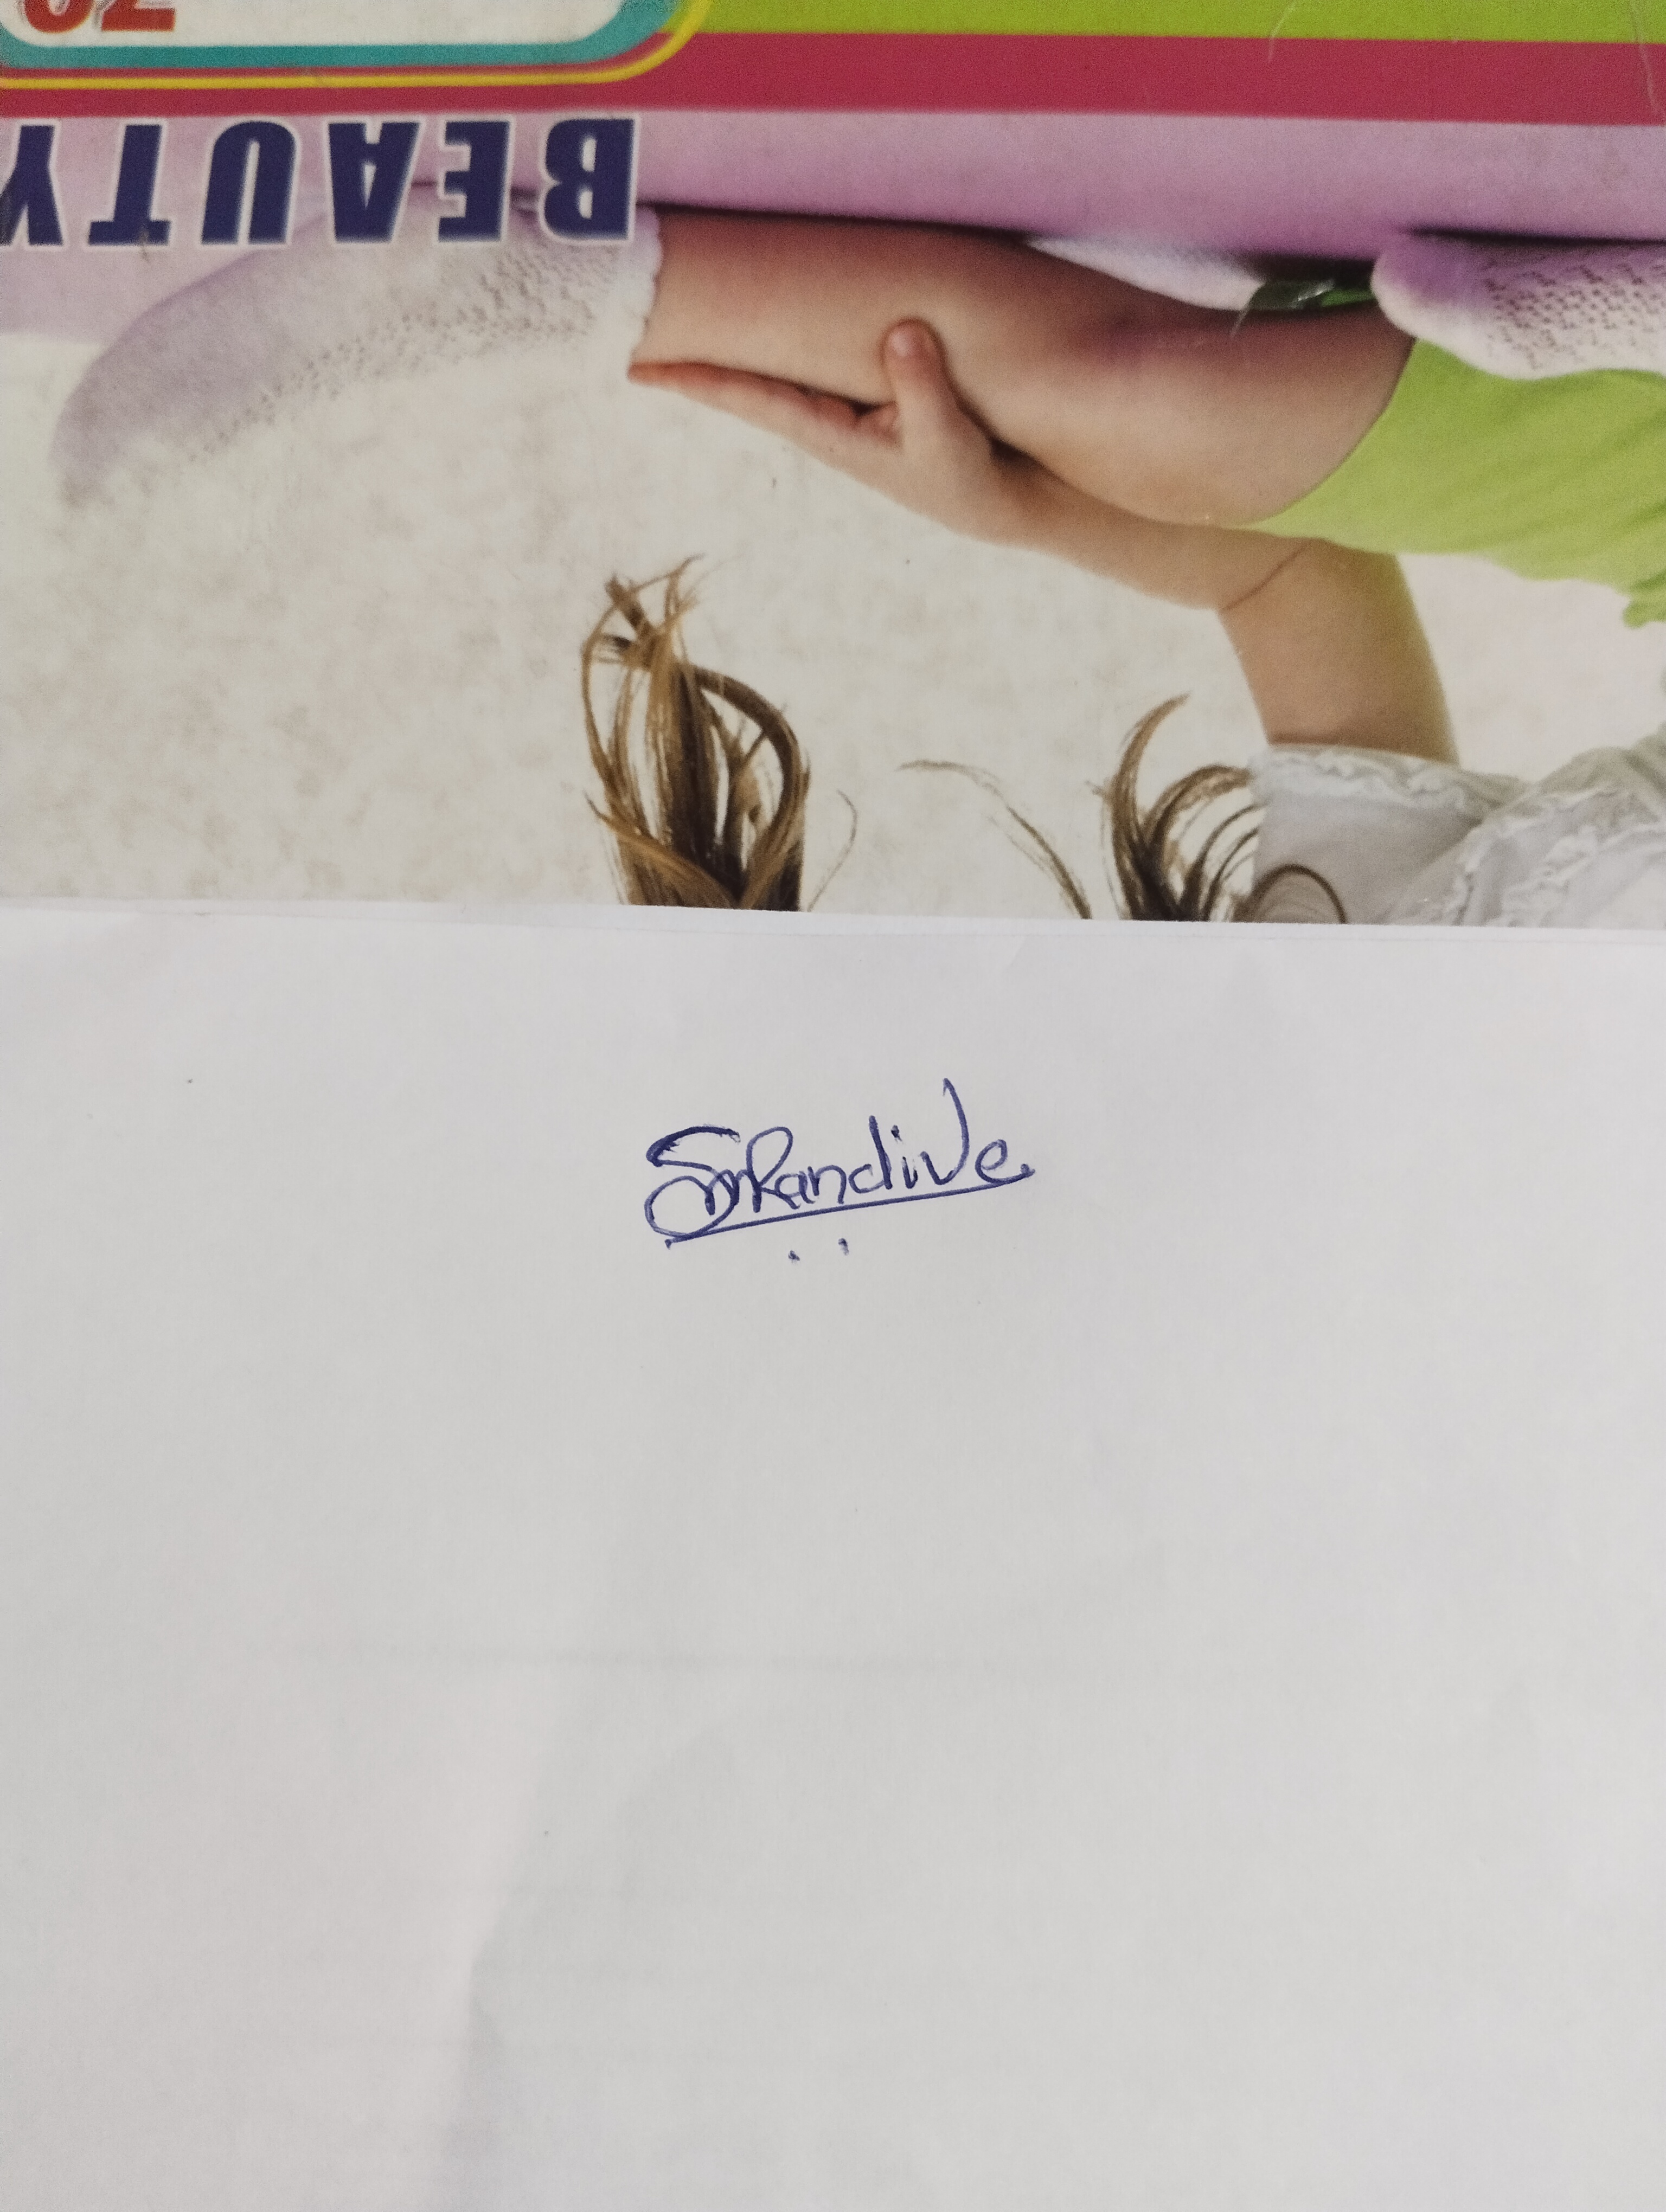 BEAUTY
Smkandive